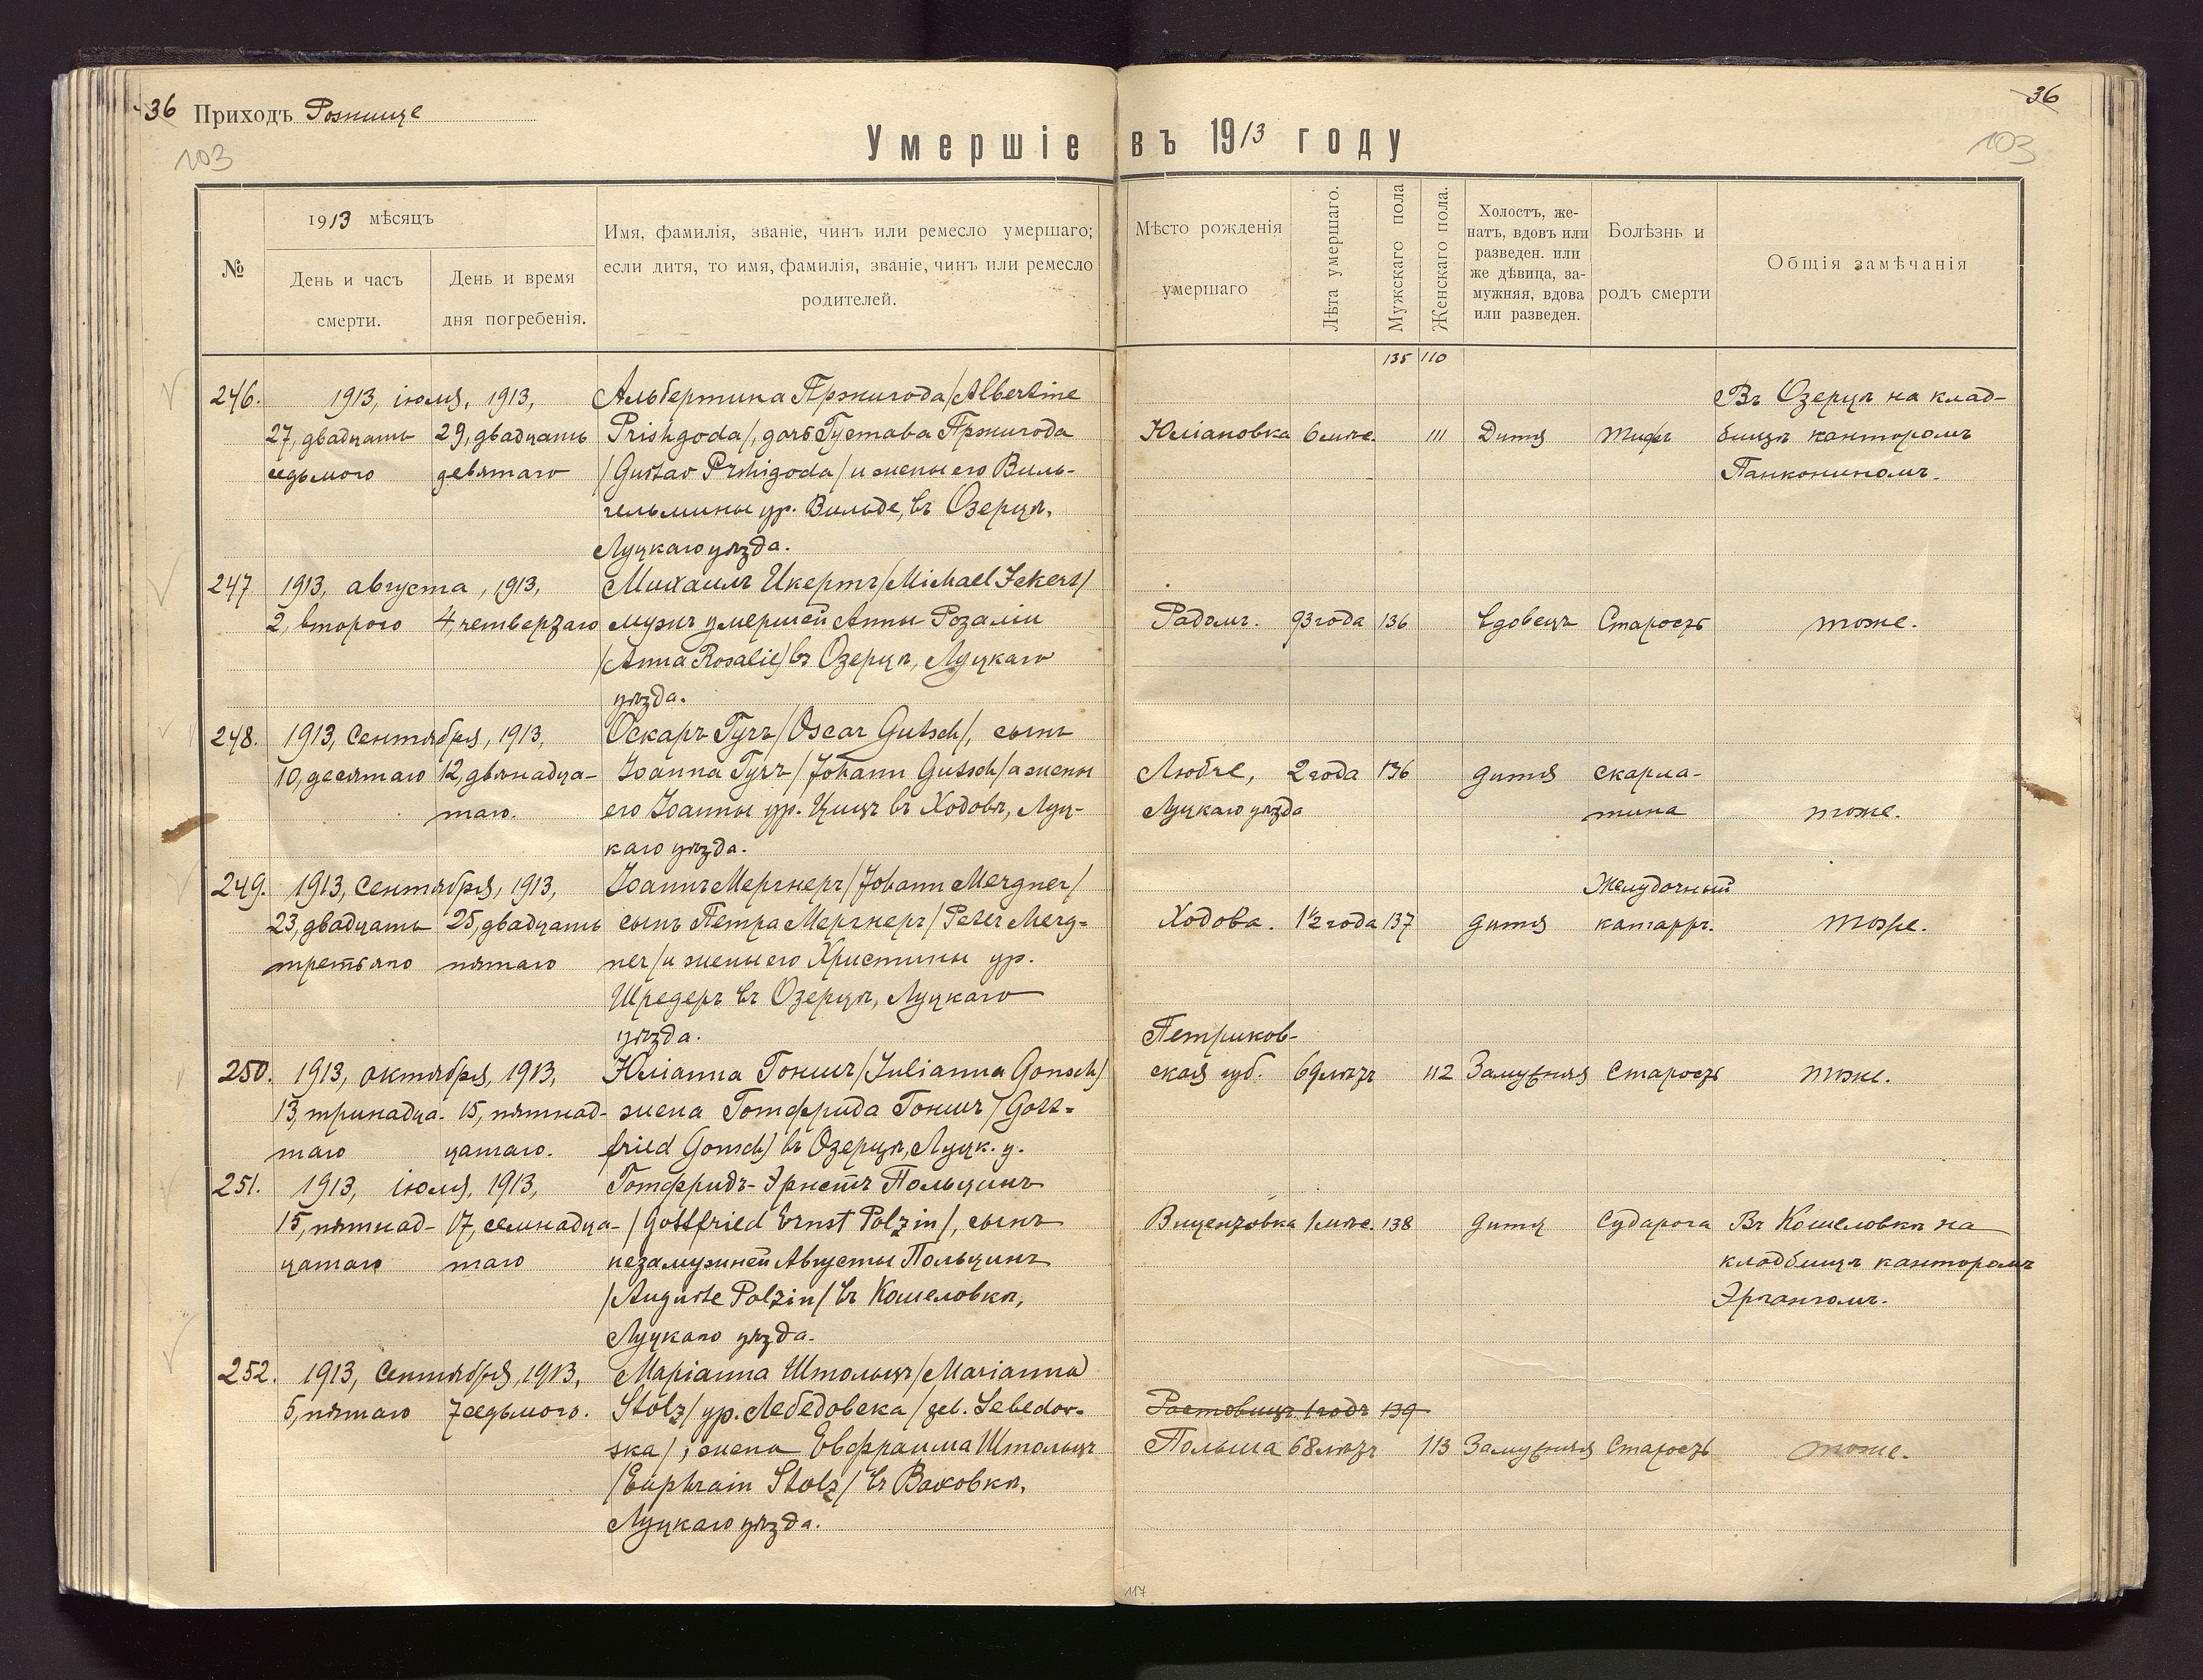 36 Приходъ Рознище
36
103
103
Умершіе въ 1913 году
№
1913 мѣсяцъ
День и часъ
смерти.
День и время
дня погребенія.
Имя, фамилія, званіе, чинъ или ремесло умершаго;
если дитя, то имя, фамилія, званіе, чинъ или ремесло
родителей.
Мѣсто рожденія
умершаго
Лѣта умершаго.
Мужскаго пола
Женскаго пола.
Холостъ, же-
натъ, вдовъ или
разведен. или
же дѣвица, за-
мужняя, вдова
или разведен.
Болѣзнь и
родъ смерти
Общія замѣчанія
135 110
246. 1913, іюля, 1913, Альбертина Пржигода /Albertine Въ Озерцѣ на клад-
27, двадцать 29, двадцать Prishgoda/, дочь Густава Пржигода Юліановка 6 мѣс. 111 Дитя тифъ бищѣ канторомъ
седьмого девятаго /Gustav Prshigoda/ и жены его Виль- Панкониномъ.
гельмины ур. Вильде, въ Озерцѣ,
Луцкаго уѣзда.
247 1913, августа, 1913, Михаилъ Икертъ /Michael Ickert/
2, второго 4, четвертаго мужъ умершей Анны Розаліи Радомъ. 93 года 136 вдовецъ Старость тоже.
/Anna Rosalie/ въ Озерцѣ, Луцкаго
уѣзда.
248. 1913, Сентября, 1913, Оскаръ Гучъ /Oscar Gutsch/, сынъ
10, десятаго 12, двѣнадца- Іоанна Гучъ /Johann Gutsch/ и жены Любче, 2 года 136 дитя скарла-
таго. его Іоанны ур. Цицъ въ Ходовѣ, Луц- Луцкаго уѣзда тина тоже.
каго уѣзда.
249. 1913, Сентября, 1913, Іоаннъ Мергнеръ /Johann Mergner/ Желудочный
23, двадцать 25, двадцать сынъ Петра Мергнеръ /Peter Merg- Ходова. 1½ года 137 дитя катарръ. тоже.
третьяго пятаго ner/ и жены его Христины ур.
Шредеръ въ Озерцѣ, Луцкаго
уѣзда. Петриков-
250. 1913, октября, 1913, Юліанна Гоншъ /Julianna Gonsch/ ская губ. 69 лѣтъ 112 Замужняя Старость тоже.
13, тринадца- 15, пятнад- жена Готфрида Гоншъ /Gott-
таго цатаго. fried Gonsch/ въ Озерцѣ, Луцк. у.
251. 1913, іюля, 1913, Готфридъ-Эрнстъ Польцинъ
15, пятнад- 17, семнадца- /Gottfried Ernst Polzin/, сынъ Виценtовка 1 мѣс. 138 дитя судорога Въ Кошеловкѣ на
цатаго таго незамужней Августы Польцинъ кладбищѣ канторомъ
/Auguste Polzin/ въ Кошеловкѣ, Эргангомъ.
Луцкаго уѣзда.
252. 1913, Сентября, 1913, Маріанна Штольцъ /Marianna
5, пятаго 7 седьмого. Stolz/ ур. Лебедовска /geb. Lebedow- Ростовищъ 1 годъ 139
ska/, жена Евфраима Штольцъ Польша 68 лѣтъ 113 Замужняя Старость тоже.
/Euphraim Stolz/ въ Ваковкѣ,
Луцкаго уѣзда.
117